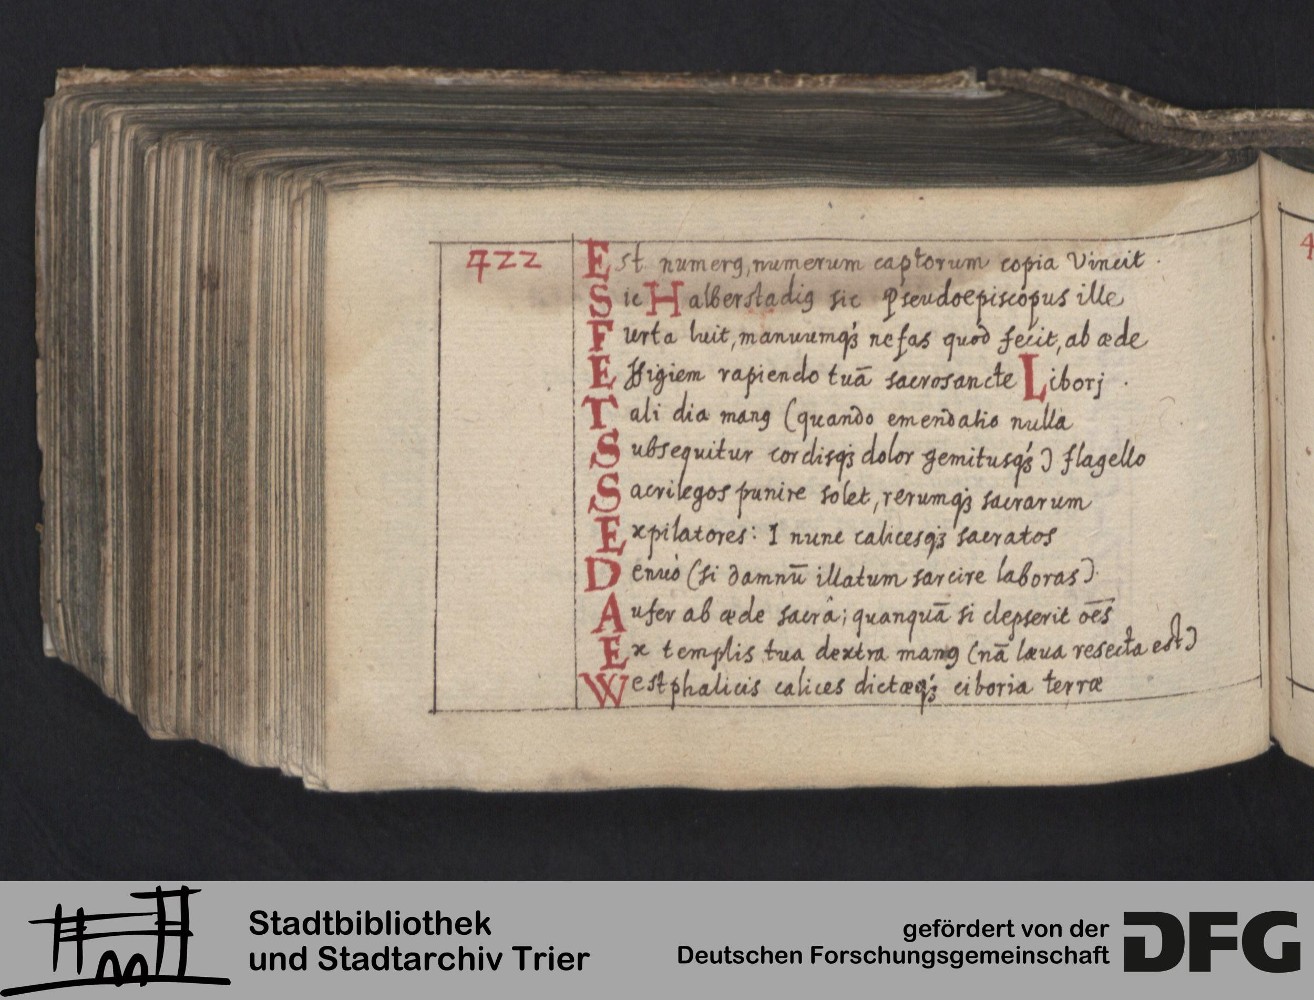 422
Est numerꝰ, numerum captorum copia Vincit.
Sic Halberstadiꝰ sic Pseudoepiscopus ille
Furta luit, manuumqꝫ nefas quòd fecit, ab æde
Effigiem rapiendo tuā sacrosancte Liborj.
Tali dia manꝰ (quando emendatio nulla
Subsequitur cordisqꝫ dolor gemitusqꝫ) flagello
Sacrilegos punire solet, rerumqꝫ sacrarum
Expilatores: I nunc calicesqꝫ sacratos
Denuò (si damnū illatum sarcire laboras)
Aufer ab æde sacrâ; quanquā si clepserit oēs
Ex templis tua dextra manꝰ (nā læua resecta est)
Westphalicis calices dictæqꝫ ciboria terræ
4
Stadtbibliothek
und Stadtarchiv Trier
gefördert von der
Deutschen Forschungsgemeinschaft
DFG